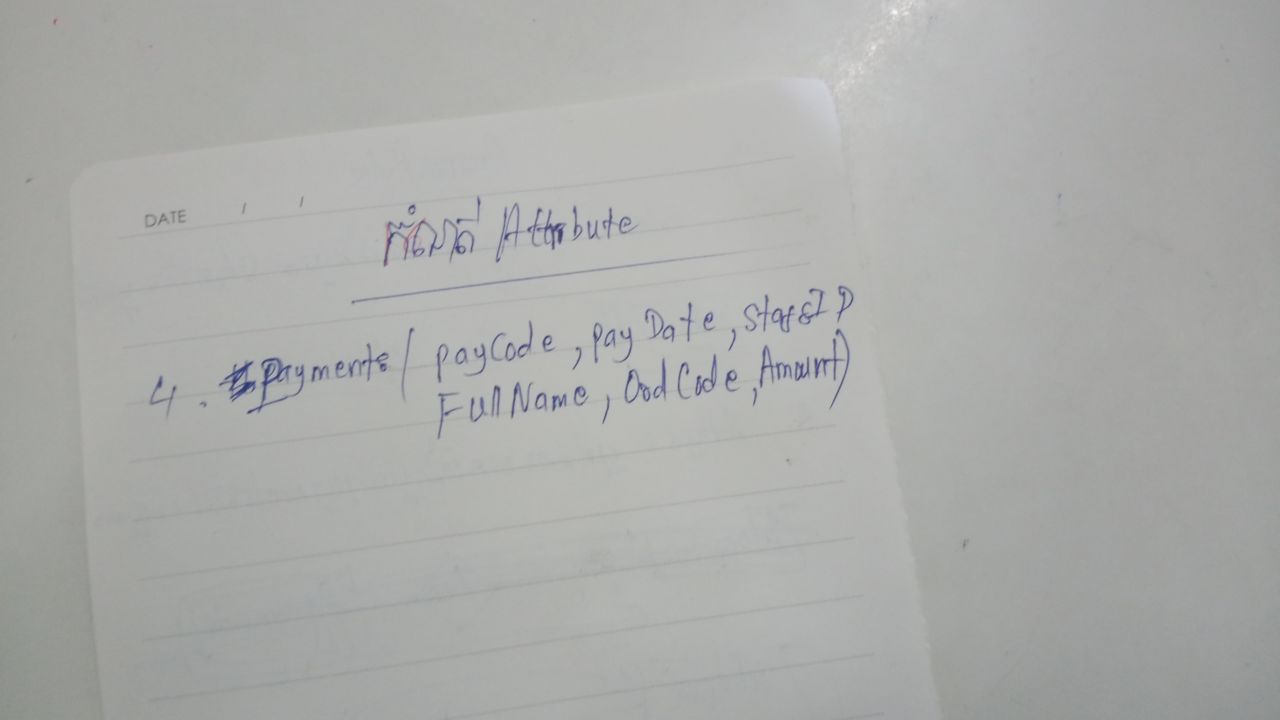 DATE / /
កំណត់ Attribute
4. Payments ( payCode, pay Date, staffID
FullName, OodCode, Amount)